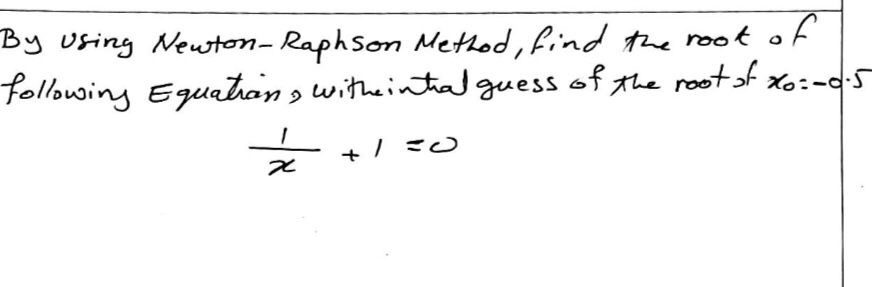 By using Newton-Raphson Method, find the root of
following Equation, with intial guess of the root of x₀=-0.5
1/x + 1 = 0